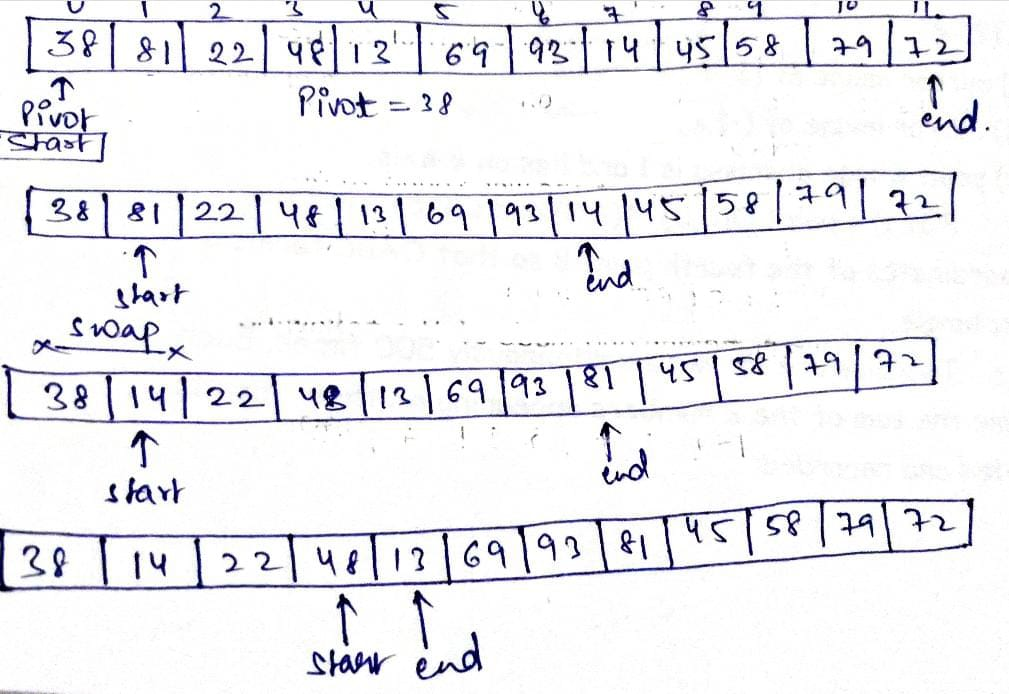 0 1 2 3 4 5 6 7 8 9 10 11
38 81 22 48 13 69 93 14 45 58 79 72
↑ Pivot = 38 ↑
Pivot end.
Start
38 81 22 48 13 69 93 14 45 58 79 72
↑ ↑
start end
x swap x
38 14 22 48 13 69 93 81 45 58 79 72
↑ ↑
start end
38 14 22 48 13 69 93 81 45 58 79 72
↑ ↑
start end